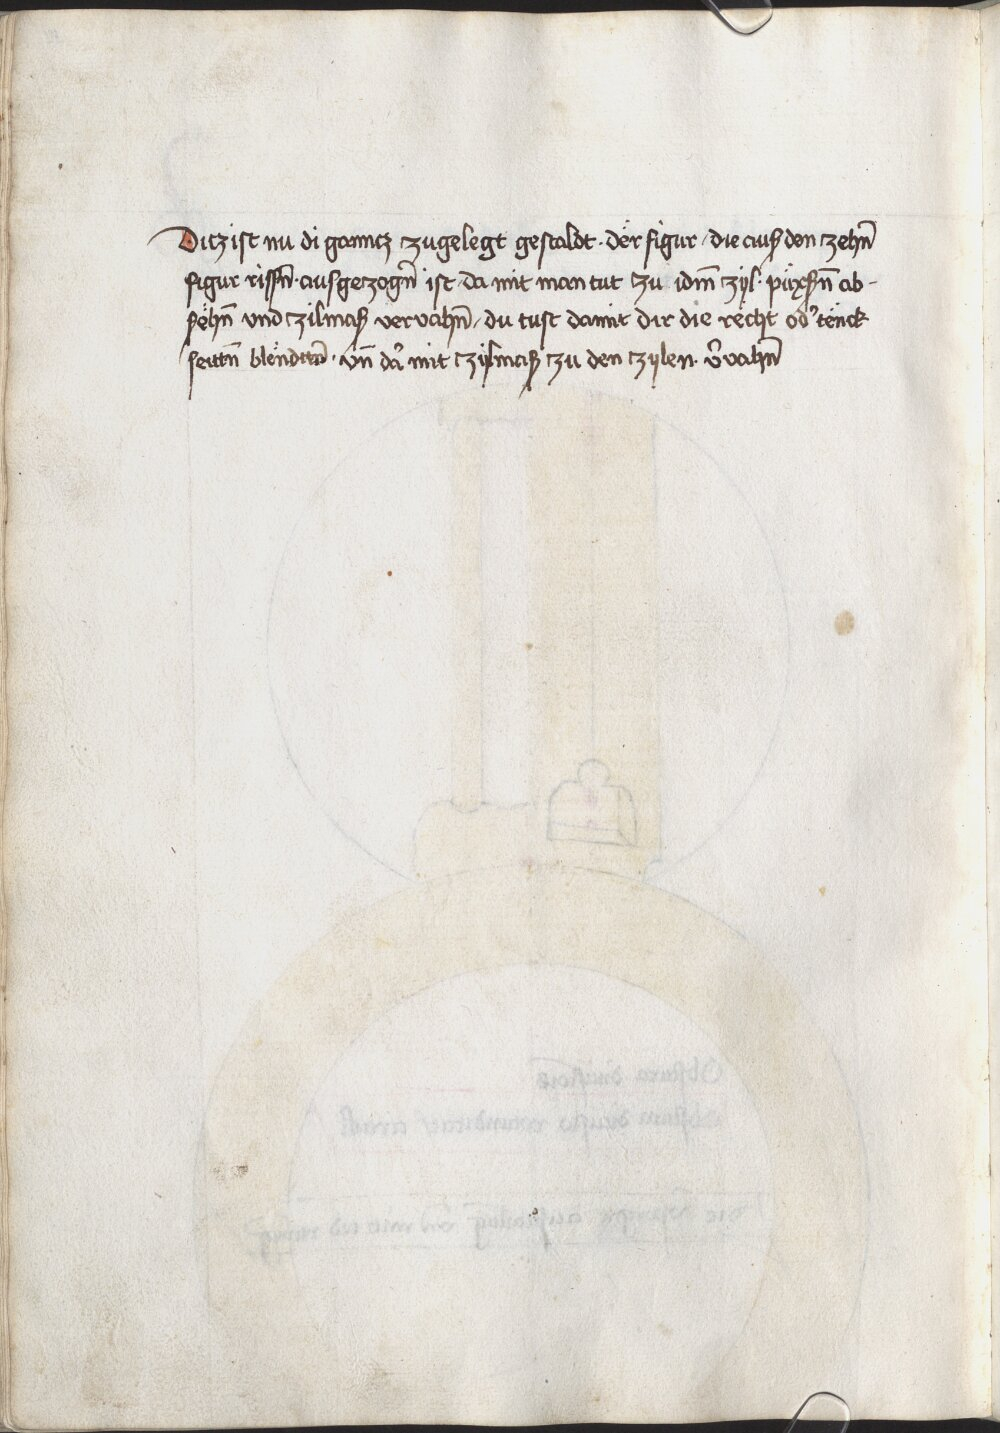 Ditz ist nu di ganncz zugelegt gestaldt · dër figur / die auß den zehn̄
figur rissn̄ · ausgezogn̄ ist · da mit man tut zu idm̄ zyl · püxßn̄ ab-
sëhn̄ vnd czilmaß vervahn̄ / du tust damit dir die rëcht od' tënck
seittn̄ blëndttn̄ · vn̄ da' mit czylmaß zu den czylen · v'vahn̄